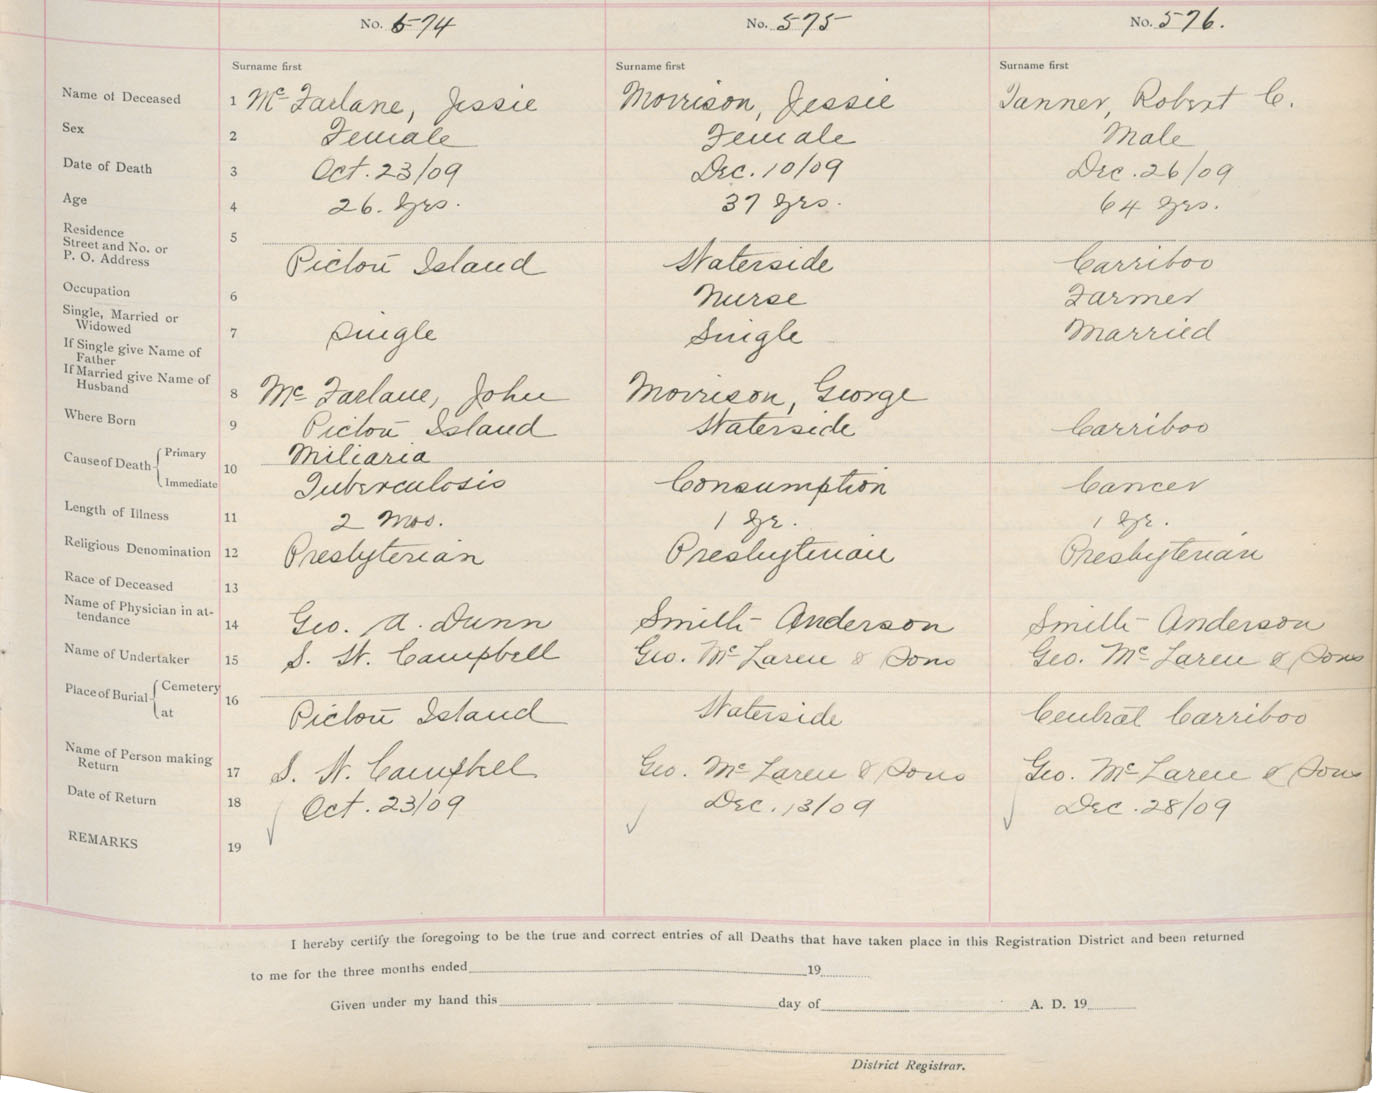 No. 574 No. 575 No. 576.
Surname first Surname first Surname first
Name of Deceased 1 Mc Farlane, Jessie Morrison, Jessie Tanner, Robert C.
Sex 2 Female Female Male
Date of Death 3 Oct. 23/09 Dec. 10/09 Dec. 26/09
Age 4 26. yrs. 37 yrs. 64 yrs.
Residence
Street and No. or 5
P. O. Address Pictou Island Waterside Carriboo
Occupation 6 Nurse Farmer
Single, Married or
Widowed 7 Single Single Married
If Single give Name of
Father
If Married give Name of
Husband 8 Mc Farlane, John Morrison, George
Where Born 9 Pictou Island Waterside Carriboo
Cause of Death Primary 10 Miliaria
Immediate Tuberculosis Consumption Cancer
Length of Illness 11 2 Mos. 1 yr. 1 yr.
Religious Denomination 12 Presbyterian Presbyterian Presbyterian
Race of Deceased 13
Name of Physician in at-
tendance 14 Geo. A. Dunn Smith Anderson Smith Anderson
Name of Undertaker 15 S. W. Campbell Geo. Mc Laren & Sons Geo. Mc Laren & Sons
Place of Burial Cemetery 16
at Pictou Island Waterside Central Carriboo
Name of Person making
Return 17 S. W. Campbell Geo. Mc Laren & Sons Geo. Mc Laren & Sons
Date of Return 18 Oct. 23/09 Dec. 13/09 Dec. 28/09
REMARKS 19
I hereby certify the foregoing to be the true and correct entries of all Deaths that have taken place in this Registration District and been returned
to me for the three months ended 19
Given under my hand this day of A. D. 19
District Registrar.